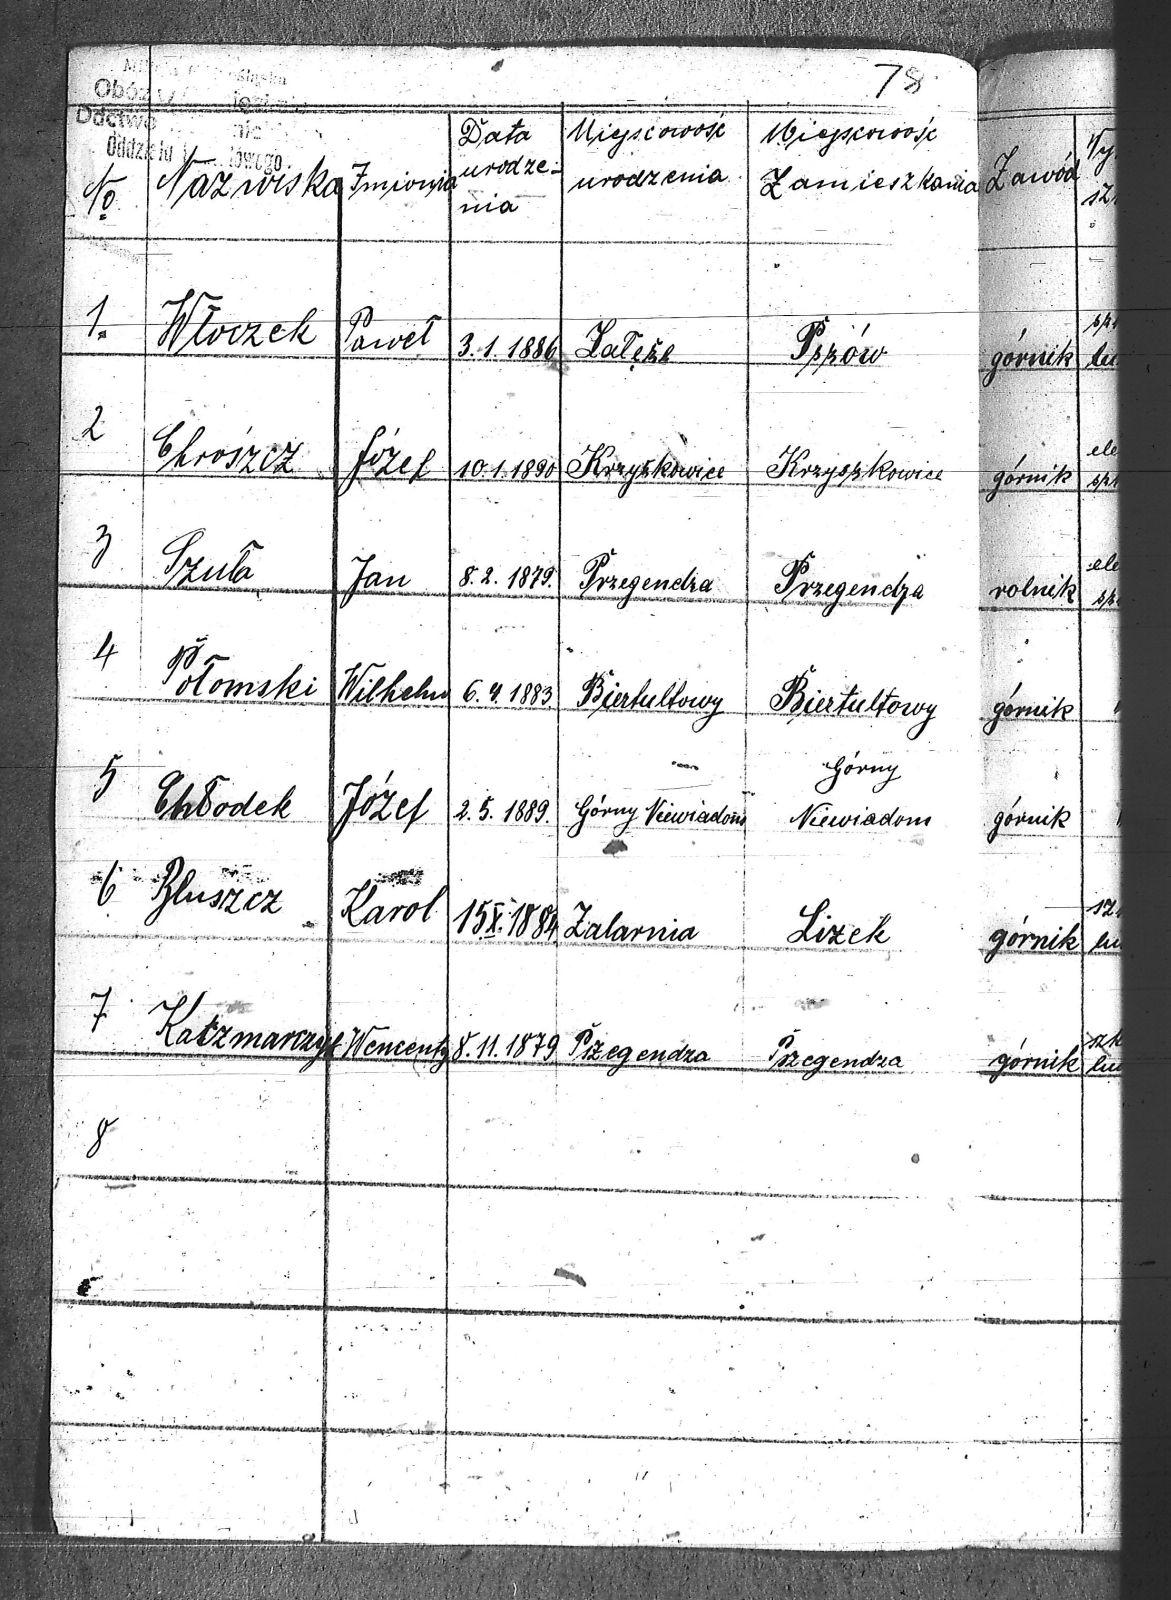 78
Obóz
Odctwa
Oddziału
No Nazwiska Imionia Data urodze- nia Miejscowość urodzenia Miejscowość Zamieszkania Zawód
1. Włoczek Paweł 3.1.1886 Załęże Pszów górnik
2 Chrószcz Józef 10.1.1890 Krzyszkowice Krzyszkowice górnik
3 Szuła Jan 8.2.1879. Przegendza Przegendza rolnik
4 Połomski Wilhelm 6.4.1883 Biertułtowy Biertułtowy górnik
5 Chłodek Józef 2.5.1889. Górny Niewiadom Górny Niewiadom górnik
6 Bluszcz Karol 15.X.1884 Zalarnia Lizek górnik
7 Katzmarczyk Wencenty 8.11.1879 Pszegendza Pszegendza górnik
8